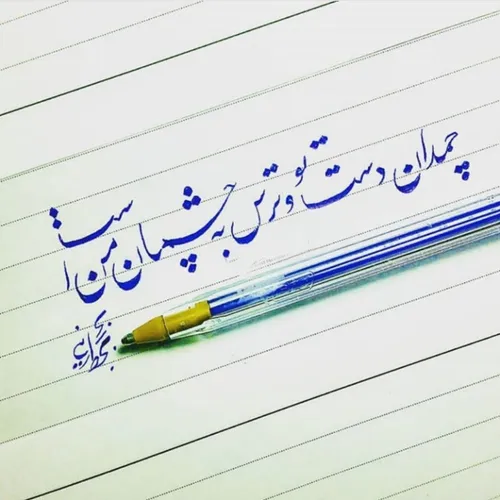 چمدان دست تو و ترس به چشمان من است